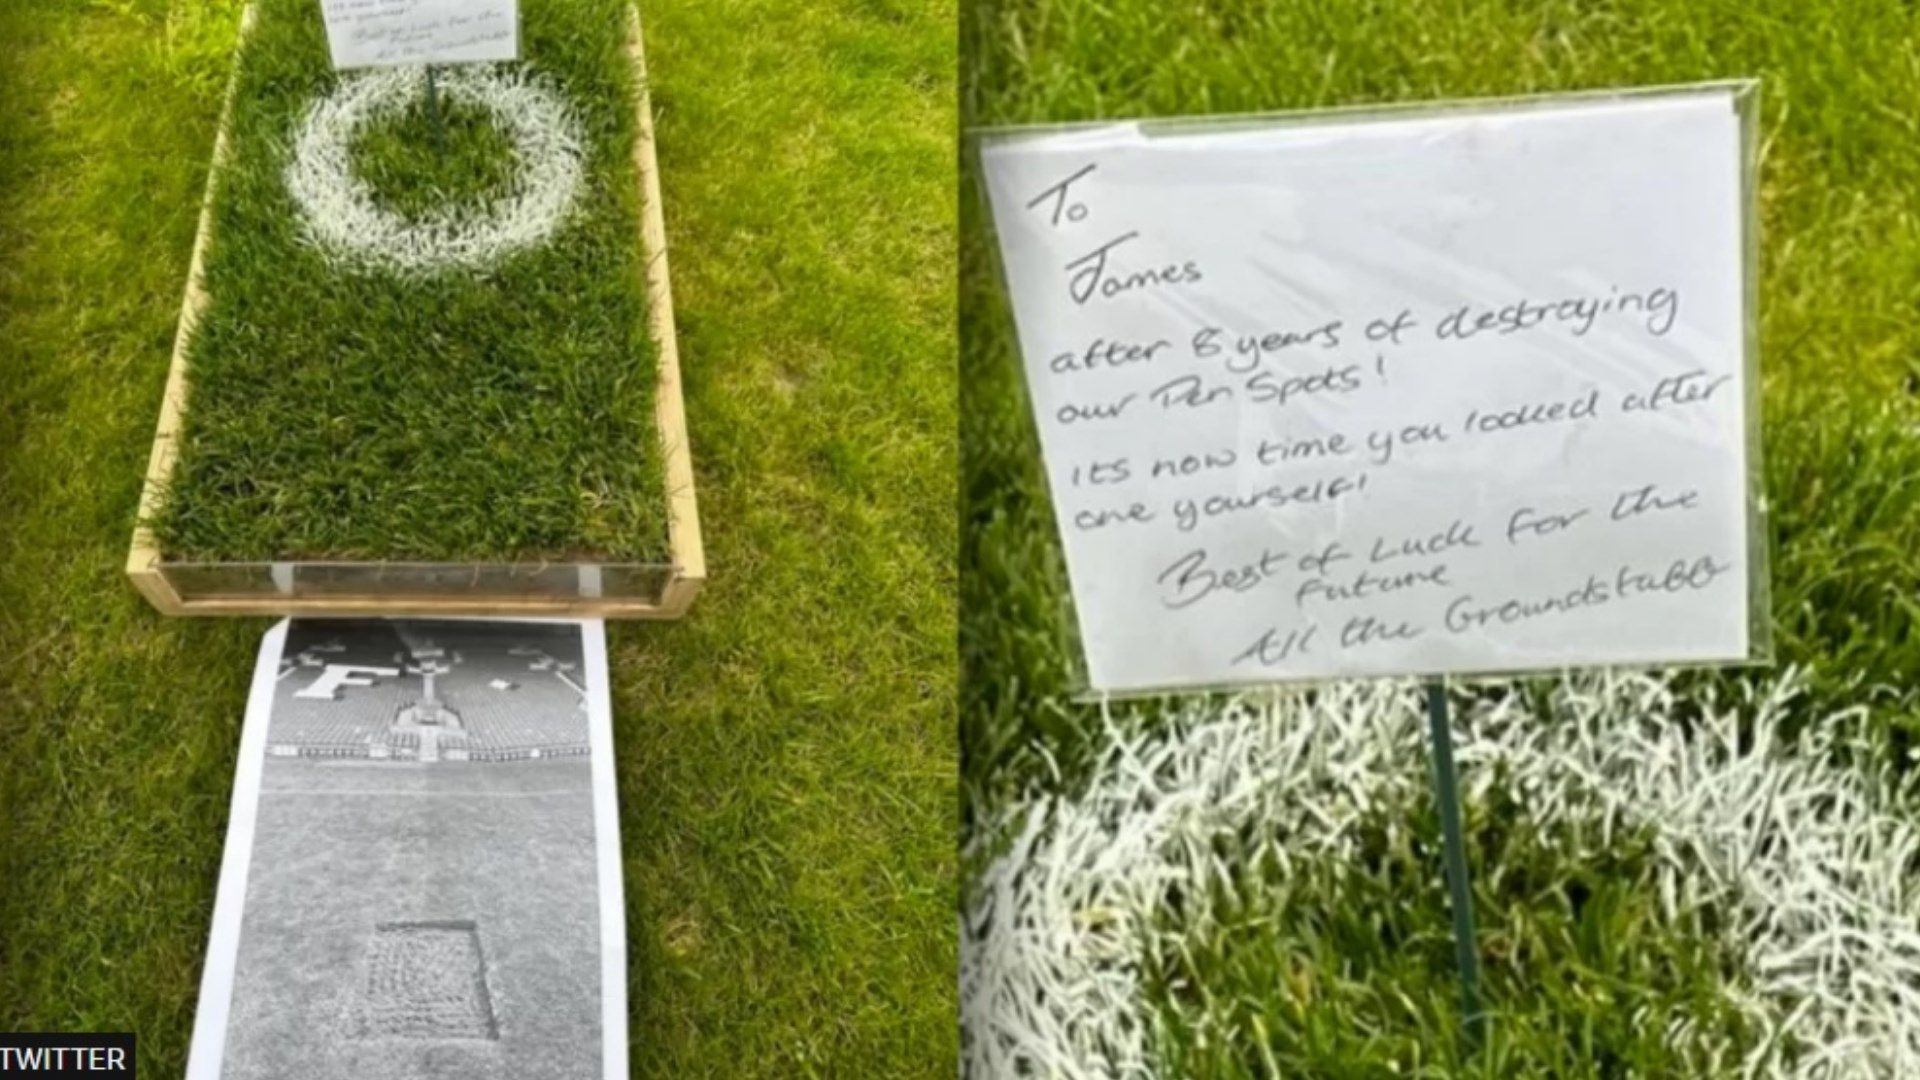 one yourself!
Best of Luck for the
Future
All the Groundstaff
F
To
James
after 8 years of destroying
our Pen Spots!
Its now time you looked after
one yourself!
Best of Luck for the
Future
All the Groundstaff
TWITTER